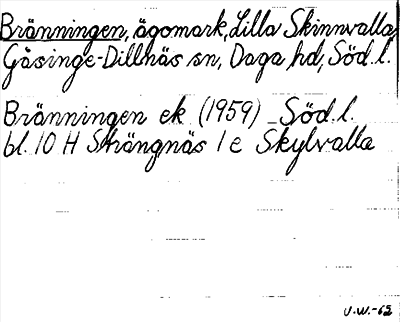 Bränningen, ägomark, Lilla Skinnvalla,
Gåsinge-Dillnäs sn, Daga hd, Söd. l.
Bränningen ek (1959) Söd. l.
bl. 10 H Strängnäs 1 e Skylvalla
J.W.-62